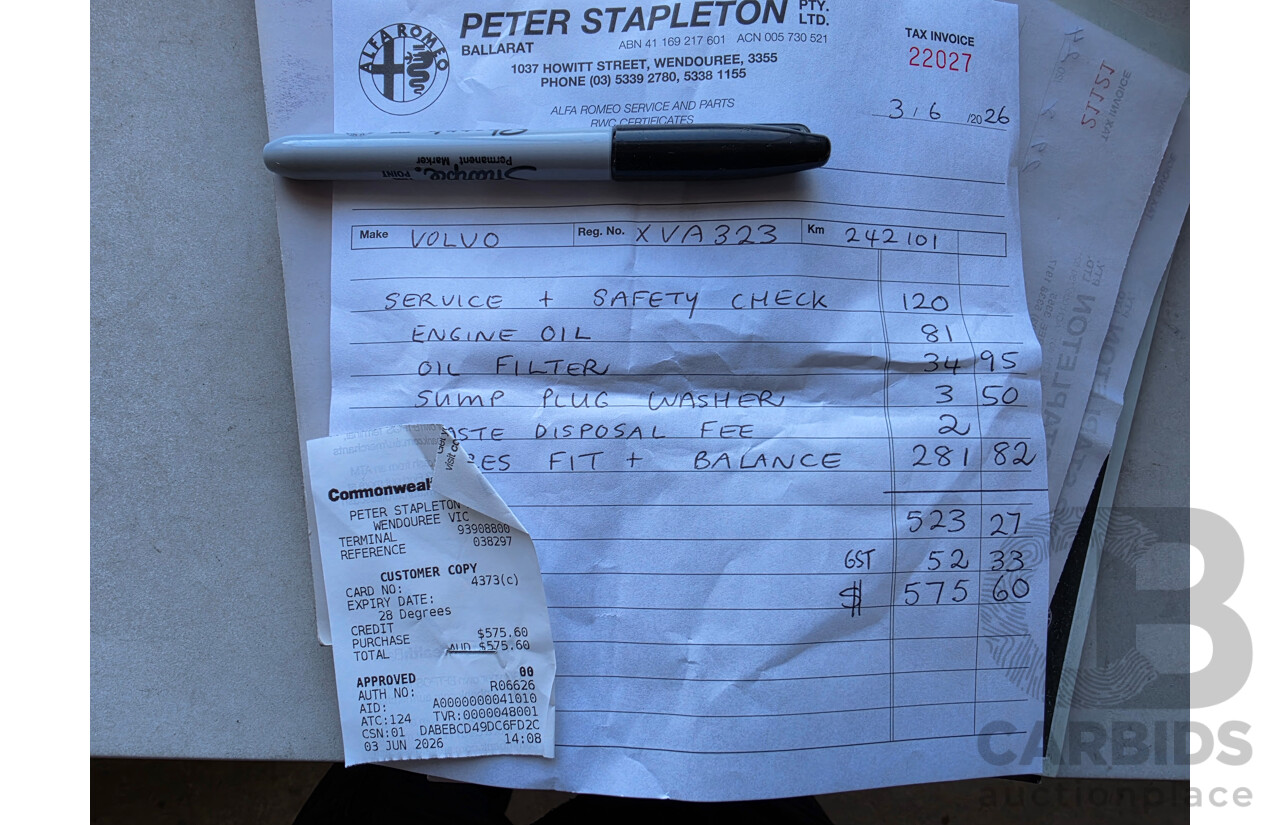 PETER STAPLETON PTY. LTD.
ALFA ROMEO
BALLARAT
ABN 41 169 217 601 ACN 005 730 521
1037 HOWITT STREET, WENDOUREE, 3355
PHONE (03) 5339 2780, 5338 1155
TAX INVOICE
22027
ALFA ROMEO SERVICE AND PARTS
RWC CERTIFICATES
3 / 6 /2026
Sharpie.
Permanent Marker
POINT
Make VOLVO Reg. No. XVA323 Km 242101
SERVICE + SAFETY CHECK 120
ENGINE OIL 81
OIL FILTER 34 95
SUMP PLUG WASHER 3 50
ASTE DISPOSAL FEE 2
RES FIT + BALANCE 281 82
523 27
GST 52 33
$ 575 60
Commonweal
PETER STAPLETON
WENDOUREE VIC
TERMINAL 93908800
REFERENCE 038297
CUSTOMER COPY
CARD NO: 4373(c)
EXPIRY DATE:
28 Degrees
CREDIT
PURCHASE $575.60
TOTAL AUD $575.60
APPROVED 00
AUTH NO: R06626
AID: A0000000041010
ATC:124 TVR:0000048001
CSN:01 DABEBCD49DC6FD2C
03 JUN 2026 14:08
21121
TAX INVOICE
CARBIDS
auctionplace